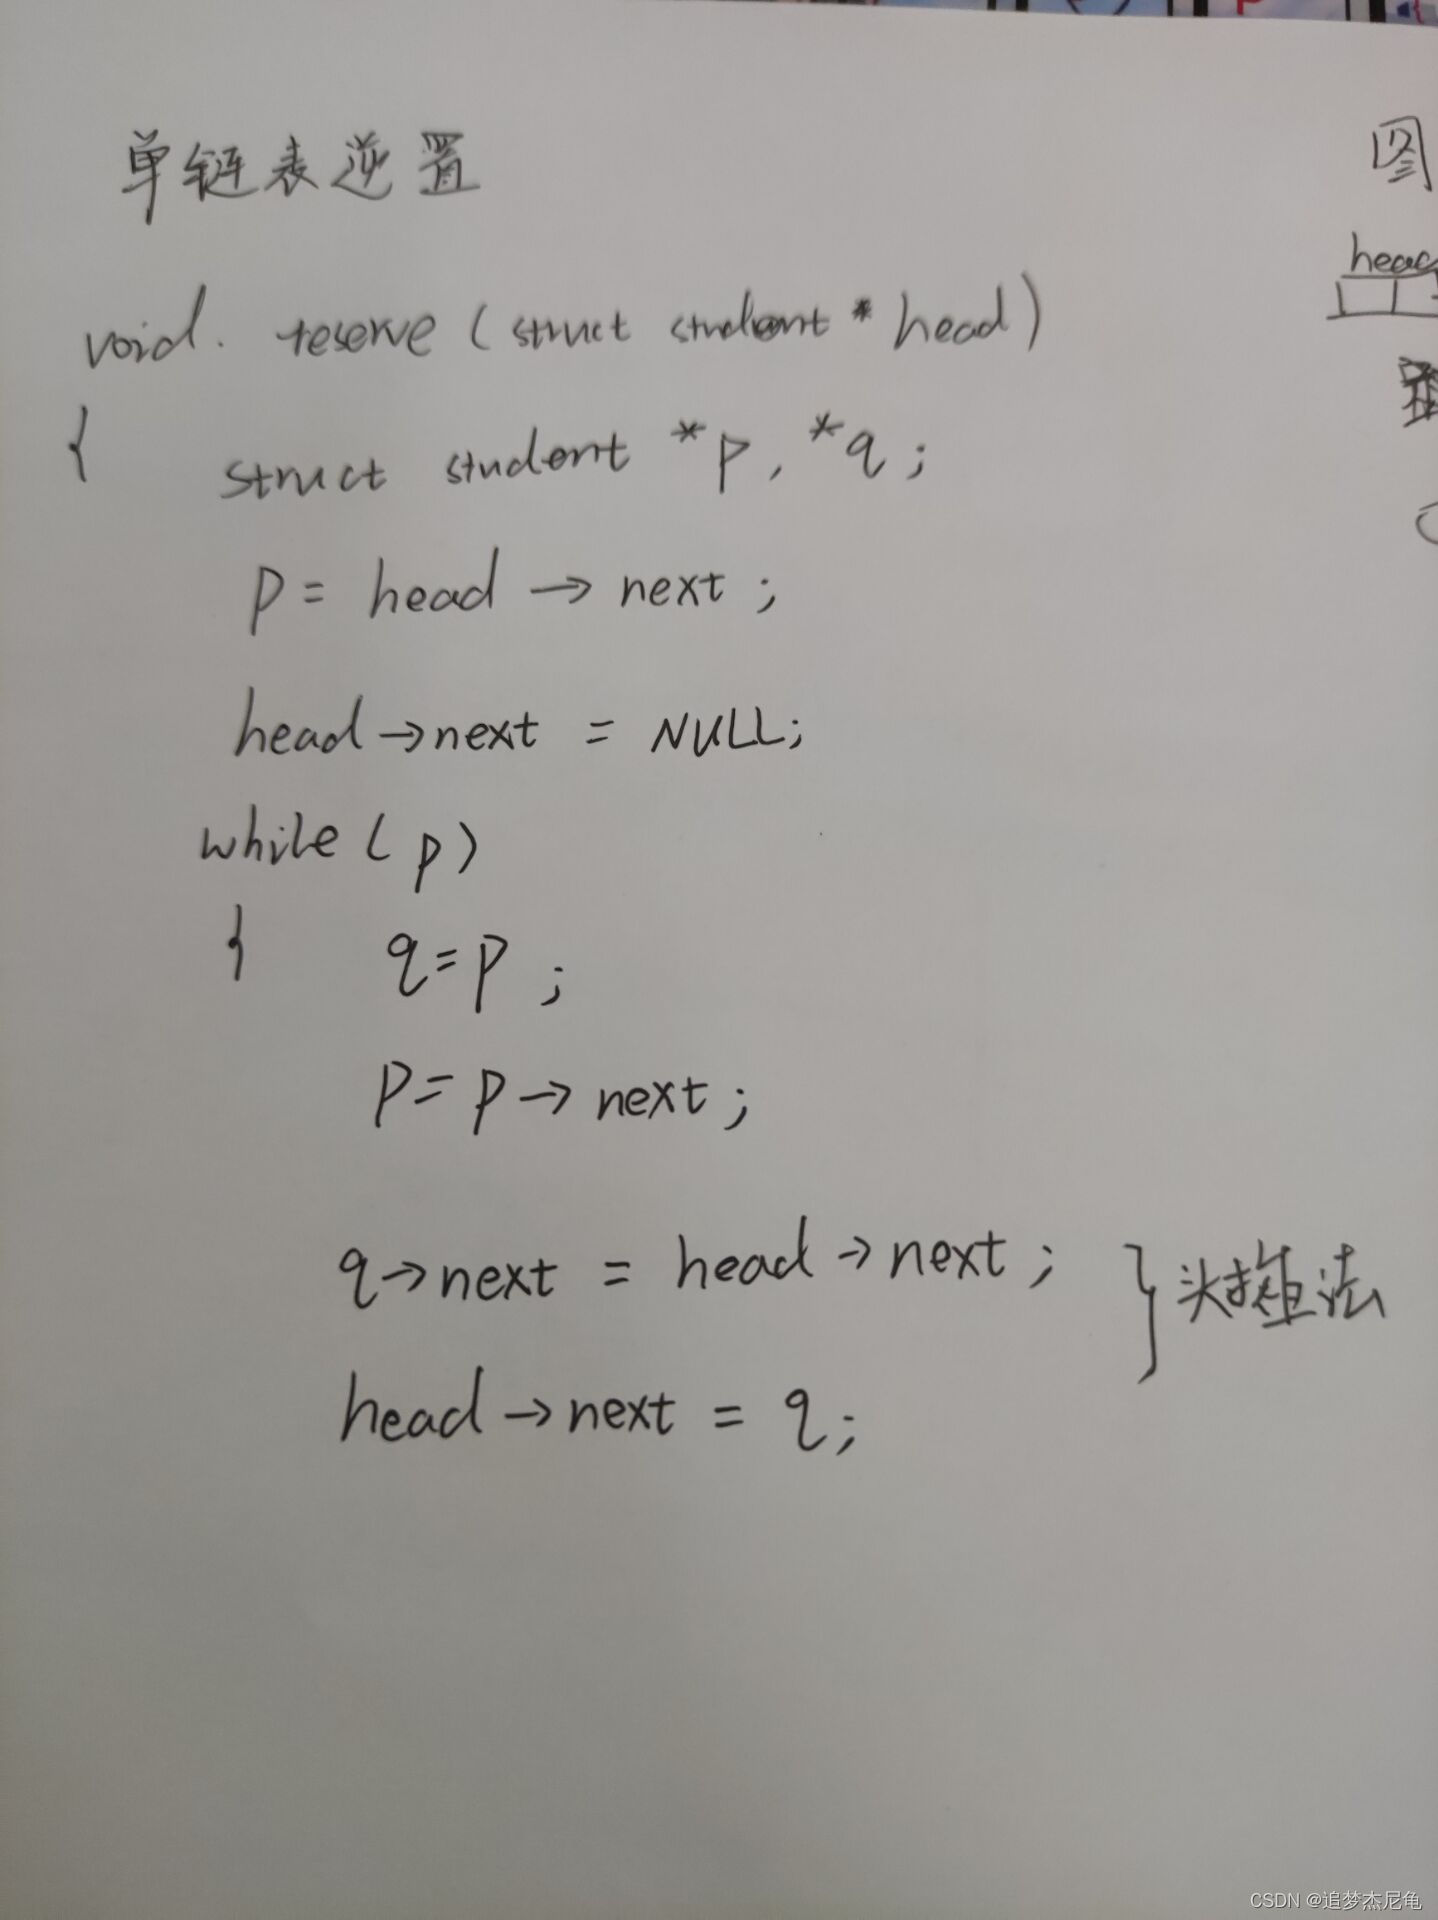 单链表逆置
void. reserve (struct student * head)
{ struct student *p, *q;
p = head → next ;
head→next = NULL;
while ( p )
{ q=p ;
p= p→ next ;
q→next = head →next ; } 头插法
head→next = q;
图
head
CSDN @追梦杰尼龟